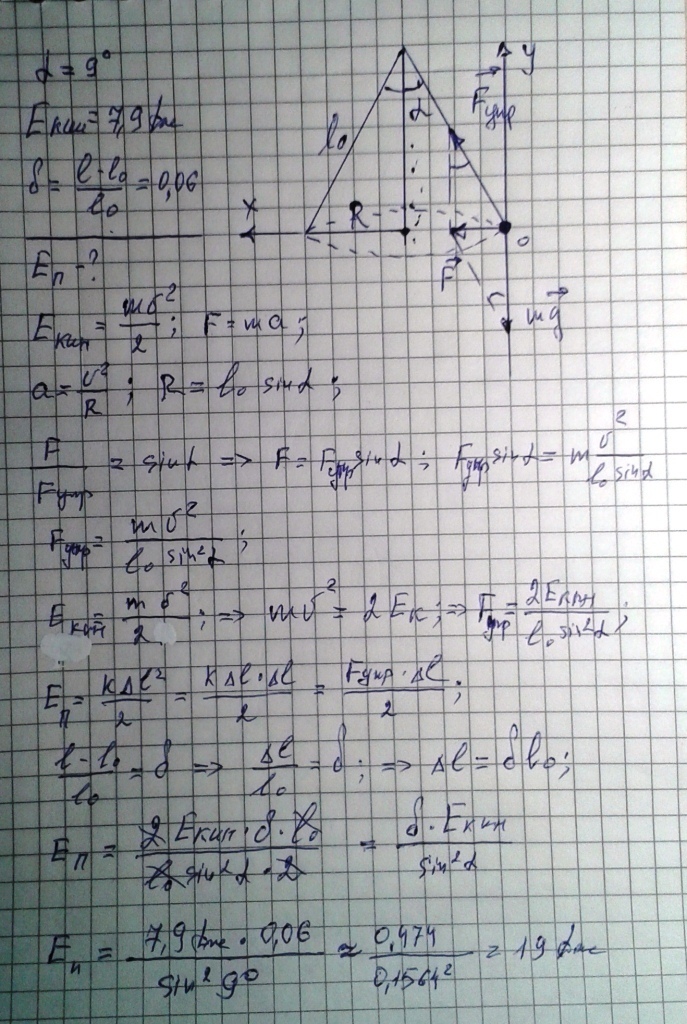 α = 9°
Eкин = 7,9 Дж
δ = (l - l₀)/l₀ = 0,06
Eп - ?
l₀ α y Fупр
x R F 0 mg
Eкин = mv²/2; F = ma;
a = v²/R; R = l₀ sinα;
F/Fупр = sinα => F = Fупр sinα; Fупр sinα = m v²/(l₀ sinα)
Fупр = mv²/(l₀ sin²α);
Eкин = mv²/2; => mv² = 2Eк; => Fупр = 2Eкин/(l₀ sin²α);
Eп = KΔl²/2 = KΔl·Δl/2 = Fупр·Δl/2;
(l - l₀)/l₀ = δ => Δl/l₀ = δ; => Δl = δl₀;
Eп = 2Eкин·δ·l₀/(l₀ sin²α·2) = δ·Eкин/sin²α
Eп = 7,9 Дж · 0,06/sin² 9° ≈ 0,474/0,1564² = 19 Дж